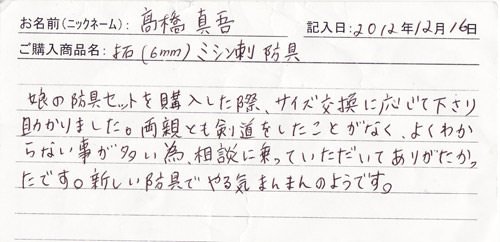 お名前(ニックネーム): 髙橋 真吾 記入日: 2012年12月16日
ご購入商品名: 拓(6mm)ミシン刺 防具
娘の防具セットを購入した際、サイズ交換に応じて下さり
助かりました。両親とも剣道をしたことがなく、よくわか
らない事が多い為、相談に乗っていただいてありがたかっ
たです。新しい防具でやる気まんまんのようです。